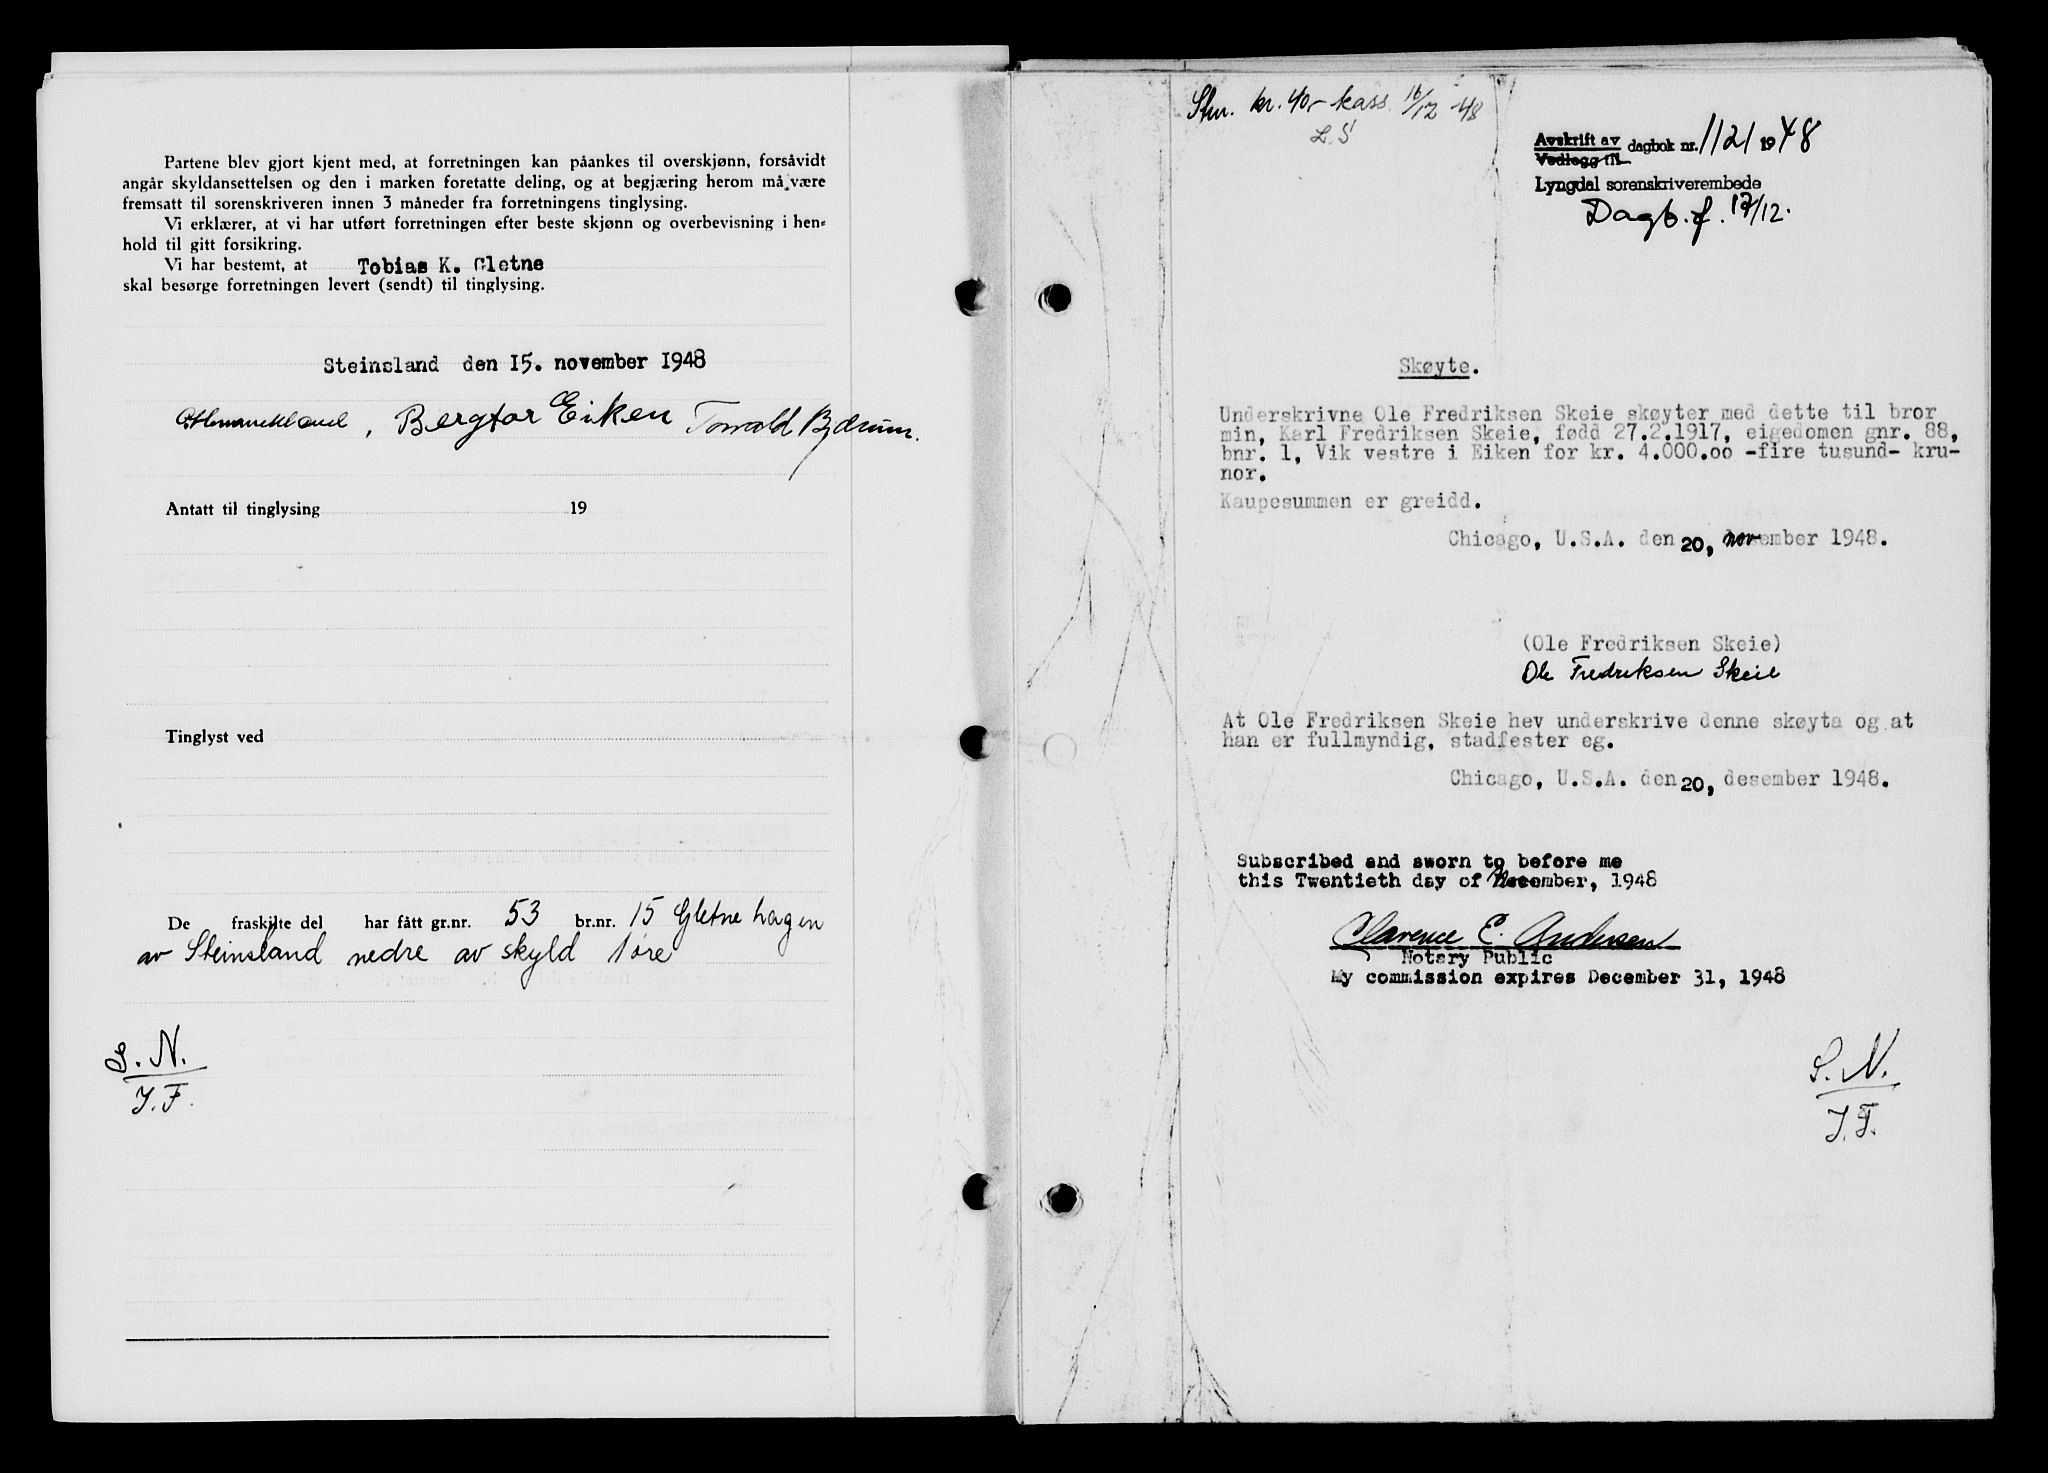 Partene blev gjort kjent med, at forretningen kan påankes til overskjønn, forsåvidt
angår skyldansettelsen og den i marken foretatte deling, og at begjæring herom må være
fremsatt til sorenskriveren innen 3 måneder fra forretningens tinglysing.
Vi erklærer, at vi har utført forretningen efter beste skjønn og overbevisning i hen-
hold til gitt forsikring.
Vi har bestemt, at Tobias K. Gletne
skal besørge forretningen levert (sendt) til tinglysing.
Steinsland den 15. november 1948
Bergtor Eiken Torvald Bydrum.
Antatt til tinglysing 19
Tinglyst ved
De fraskilte del har fått gr.nr. 53 br.nr. 15 Gletnehagen
av Steinsland nedre av skyld 1 øre
S. N.
J. F.
Stm. kr. 40,- kass. 16/12 -48
L.S
Avskrift av
Vedlegg til dagbok nr. 1121 1948
Lyngdal sorenskriverembede
Dagb. f. 17/12.
Skøyte.
Underskrivne Ole Fredriksen Skeie skøyter med dette til bror
min, Karl Fredriksen Skeie, fødd 27.2.1917, eigedomen gnr. 88,
bnr. 1, Vik vestre i Eiken for kr. 4.000.oo -fire tusund- kru-
nor.
Kaupesummen er greidd.
Chicago, U.S.A. den 20, november 1948.
(Ole Fredriksen Skeie)
Ole Fredriksen Skeie
At Ole Fredriksen Skeie hev underskrive denne skøyta og at
han er fullmyndig, stadfester eg.
Chicago, U.S.A. den 20, desember 1948.
Subscribed and sworn to before me
this Twentieth day of November, 1948
Clarence E. Andersen
Notary Public
My commission expires December 31, 1948
S. N.
J. F.